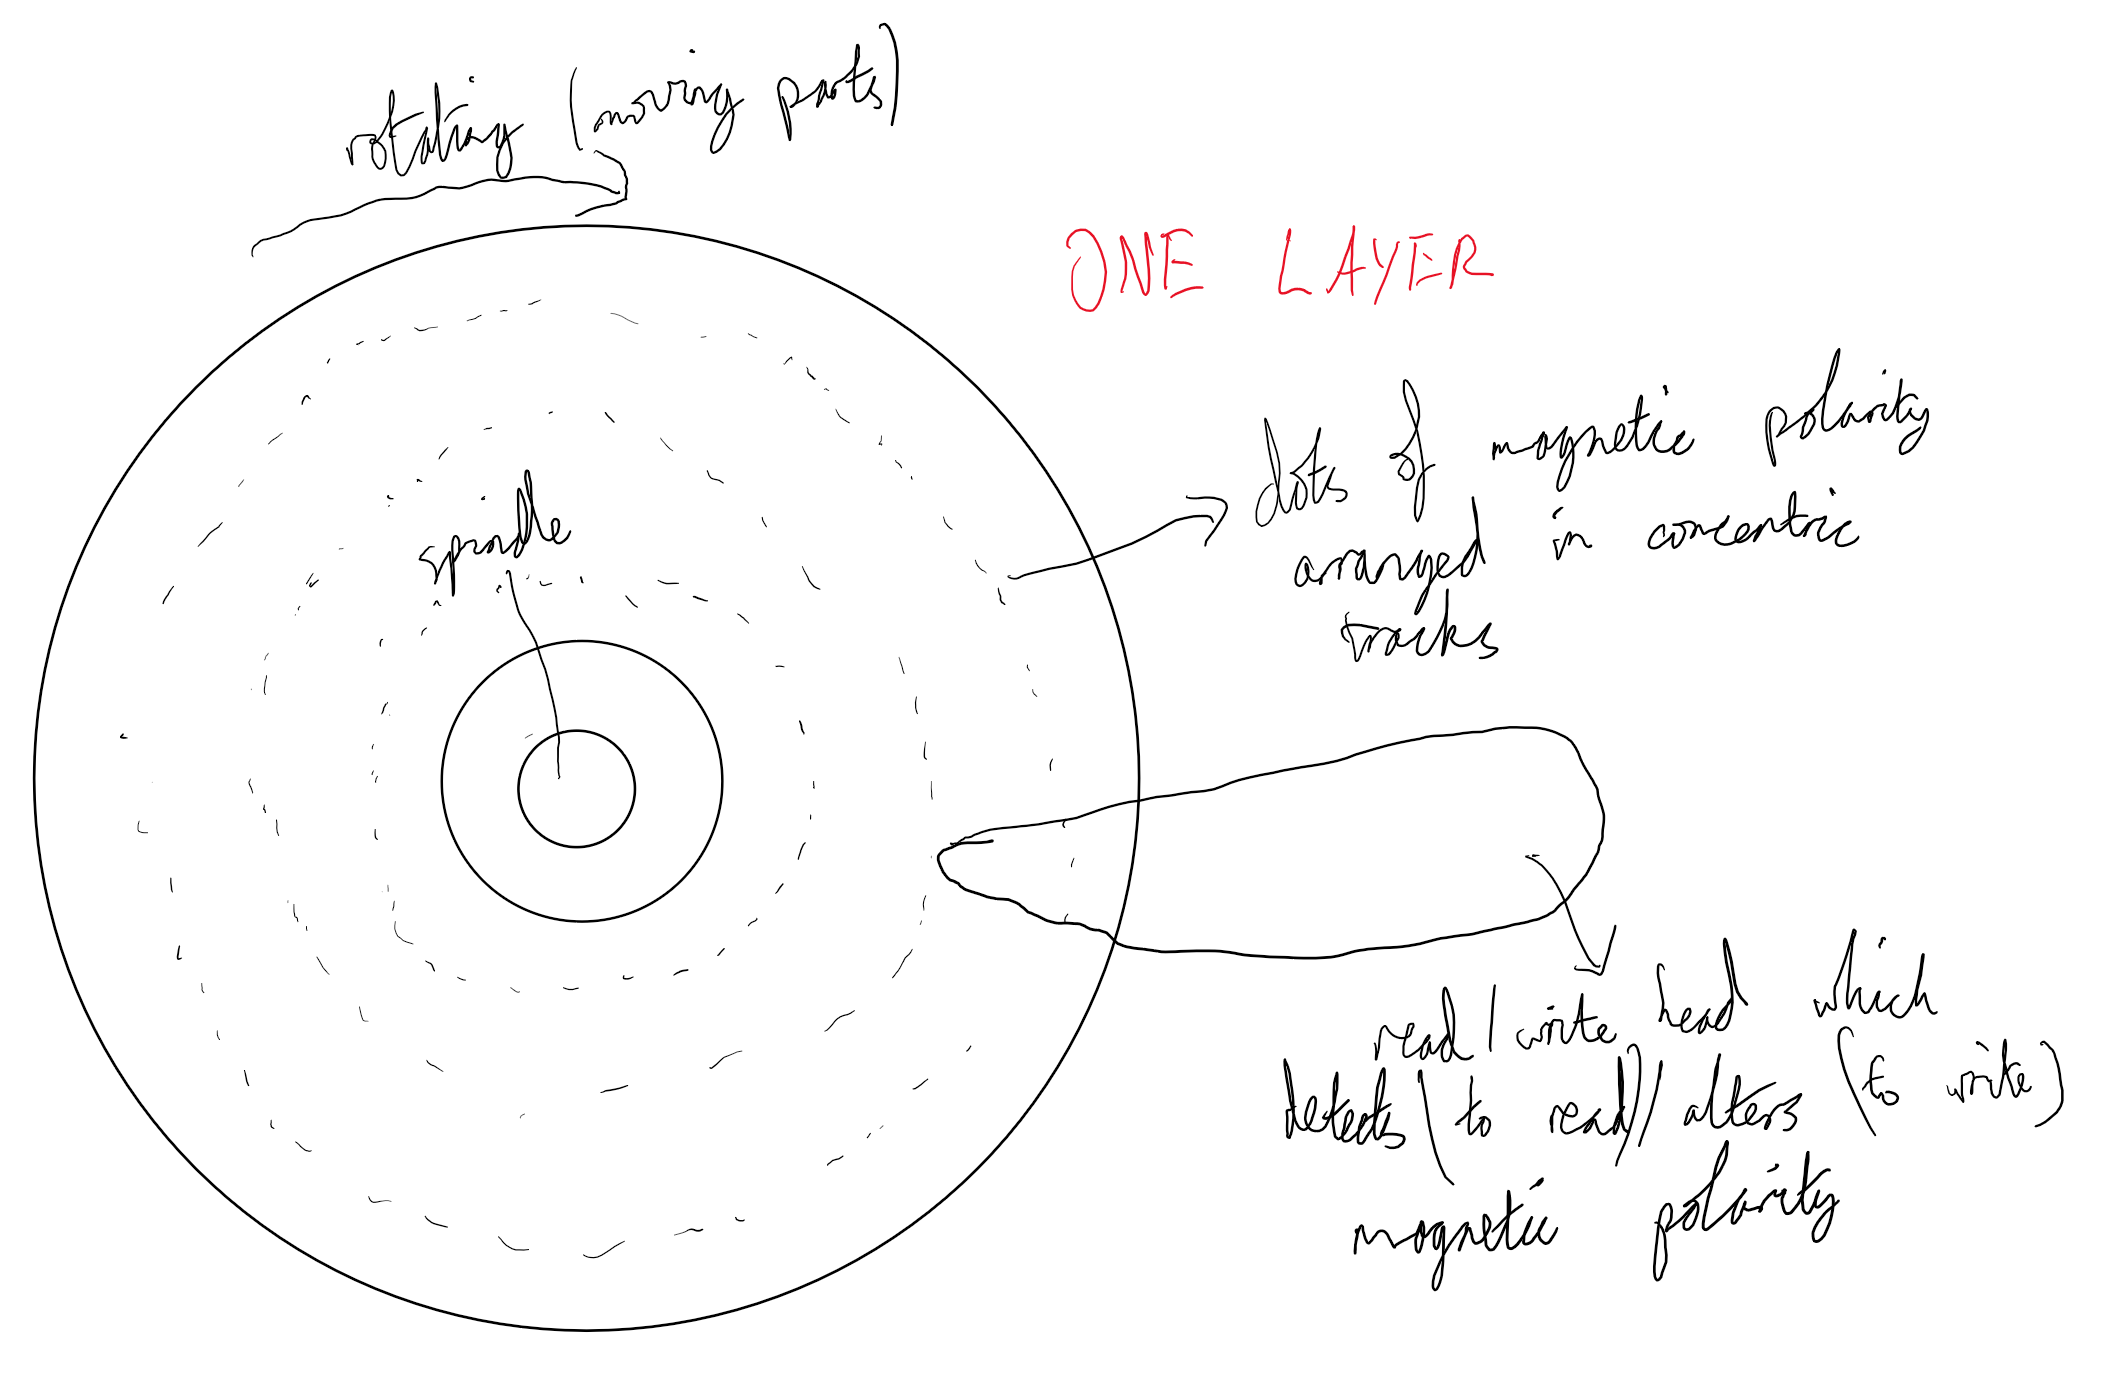 rotating (moving parts)
ONE LAYER
dots of magnetic polarity
arranged in concentric
tracks
spindle
read/write head which
detects (to read)/alters (to write)
magnetic polarity